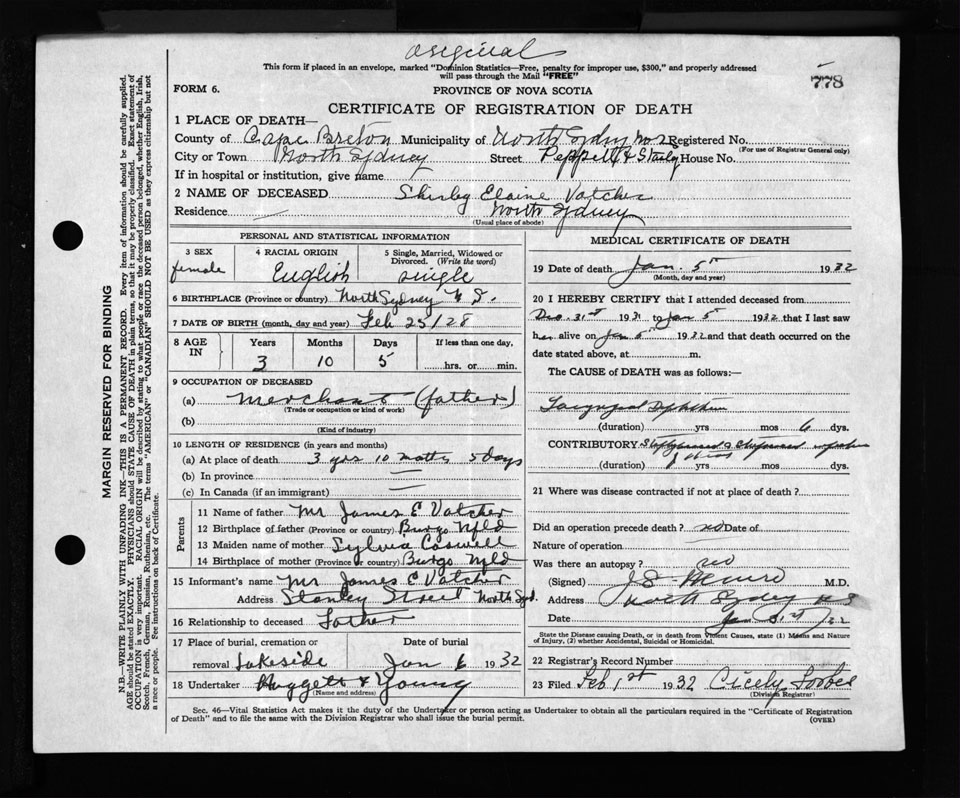 original
This form if placed in an envelope, marked "Dominion Statistics—Free, penalty for improper use, $300," and properly addressed
will pass through the Mail "FREE"
778
FORM 6.
PROVINCE OF NOVA SCOTIA
CERTIFICATE OF REGISTRATION OF DEATH
1 PLACE OF DEATH—
County of Cape Breton Municipality of North Sydney No 2 Registered No.
(For use of Registrar General only)
City or Town North Sydney Street Peppett & Stanley House No.
If in hospital or institution, give name
2 NAME OF DECEASED Shirley Elaine Vatcher
Residence — North Sydney
(Usual place of abode)
PERSONAL AND STATISTICAL INFORMATION
3 SEX female
4 RACIAL ORIGIN English
5 Single, Married, Widowed or Divorced. (Write the word) single
6 BIRTHPLACE (Province or country) North Sydney N.S.
7 DATE OF BIRTH (month, day and year) Feb 25/28
8 AGE IN Years Months Days If less than one day,
3 10 5 hrs. or min.
9 OCCUPATION OF DECEASED
(a) Merchant (father)
(Trade or occupation or kind of work)
(b)
(Kind of industry)
10 LENGTH OF RESIDENCE (in years and months)
(a) At place of death 3 yrs 10 mths 5 days
(b) In province —
(c) In Canada (if an immigrant) —
Parents
11 Name of father Mr James E Vatcher
12 Birthplace of father (Province or country) Burgo Nfld
13 Maiden name of mother Sylvia
14 Birthplace of mother (Province or country) Burgo Nfld
15 Informant's name Mr James E Vatcher
Address Stanley Street North Syd.
16 Relationship to deceased Father
17 Place of burial, cremation or removal Lakeside
Date of burial Jan 6 1932
18 Undertaker Huggett & Young
(Name and address)
MEDICAL CERTIFICATE OF DEATH
19 Date of death Jan. 5th 1932
(Month, day and year)
20 I HEREBY CERTIFY that I attended deceased from
Dec. 31st 1931 to Jan 5th 1932 that I last saw
her alive on Jan 5th 1932 and that death occurred on the
date stated above, at m.
The CAUSE of DEATH was as follows:—
Laryngeal
(duration) yrs mos 6 dys.
CONTRIBUTORY
(duration) yrs mos dys.
21 Where was disease contracted if not at place of death?
Did an operation precede death? no Date of
Nature of operation
Was there an autopsy? no
(Signed) J S Munro M.D.
Address North Sydney NS
Date Jan
State the Disease causing Death, or in death from Violent Causes, state (1) Means and Nature
of Injury, (2) whether Accidental, Suicidal or Homicidal.
22 Registrar's Record Number
23 Filed Feb 1st 1932 Cicely
(Division Registrar)
Sec. 46—Vital Statistics Act makes it the duty of the Undertaker or person acting as Undertaker to obtain all the particulars required in the "Certificate of Registration
of Death" and to file the same with the Division Registrar who shall issue the burial permit.
(OVER)
MARGIN RESERVED FOR BINDING
N.B.—WRITE PLAINLY WITH UNFADING INK—THIS IS A PERMANENT RECORD. Every item of information should be carefully supplied.
AGE should be stated EXACTLY. PHYSICIANS should STATE CAUSE OF DEATH in plain terms, so that it may be properly classified. Exact statement of
OCCUPATION is very important. RACIAL ORIGIN will be described by stating to what people or race the deceased person belonged, whether English, Irish,
Scotch, French, German, Russian, Ruthenian, etc. The terms "AMERICAN" or "CANADIAN" SHOULD NOT BE USED as they express citizenship but not
a race or people. See instructions on back of Certificate.